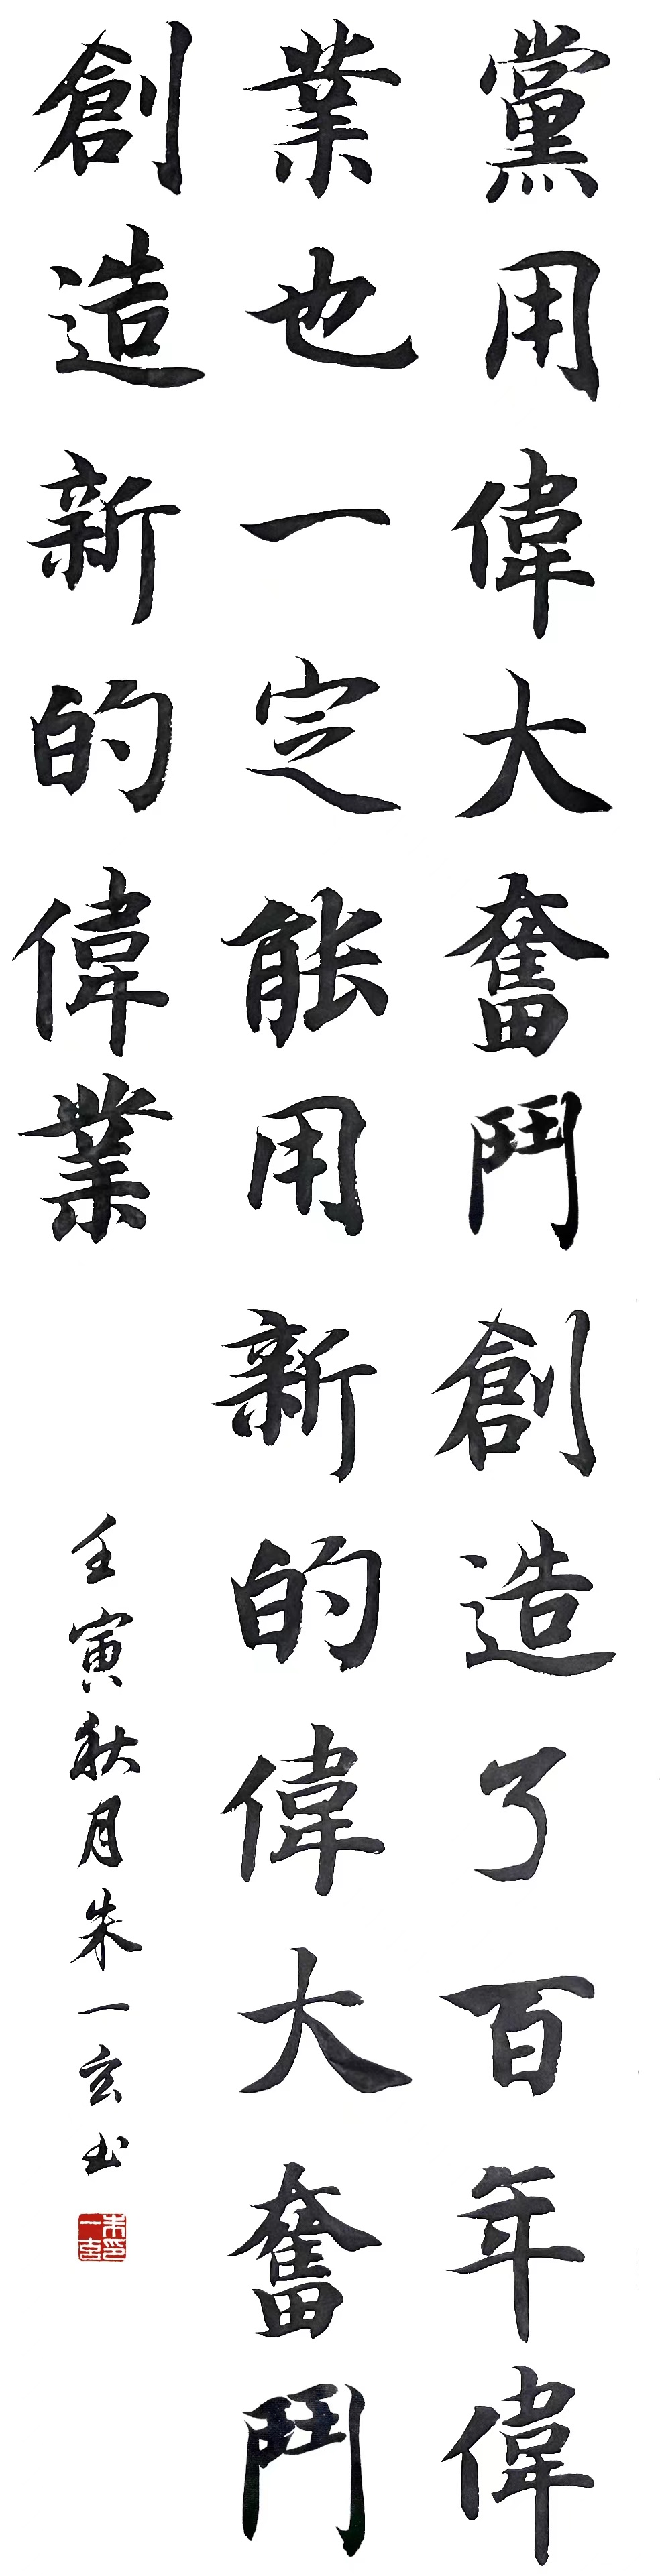 黨用偉大奮鬥創造了百年偉
業也一定能用新的偉大奮鬥
創造新的偉業
壬寅秋月朱一玄书
朱一玄印